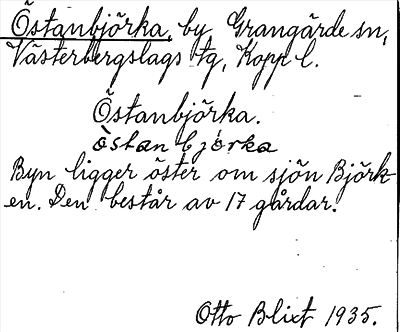 Östanbjörka, by, Grangärde sn,
Västerbergslags tg, Kopp l.
Östanbjörka.
òstanbjó̀rka
Byn ligger öster om sjön Björk-
en. Den består av 17 gårdar.
Otto Blixt 1935.